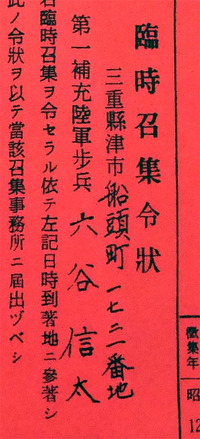 臨時召集令狀
三重縣津市船頭町一七二一番地
第一補充陸軍步兵 六谷信太
右臨時召集ヲ令セラル依テ左記日時到著地ニ參著シ
此ノ令狀ヲ以テ當該召集事務所ニ屆出ヅベシ
徵集年
昭
12